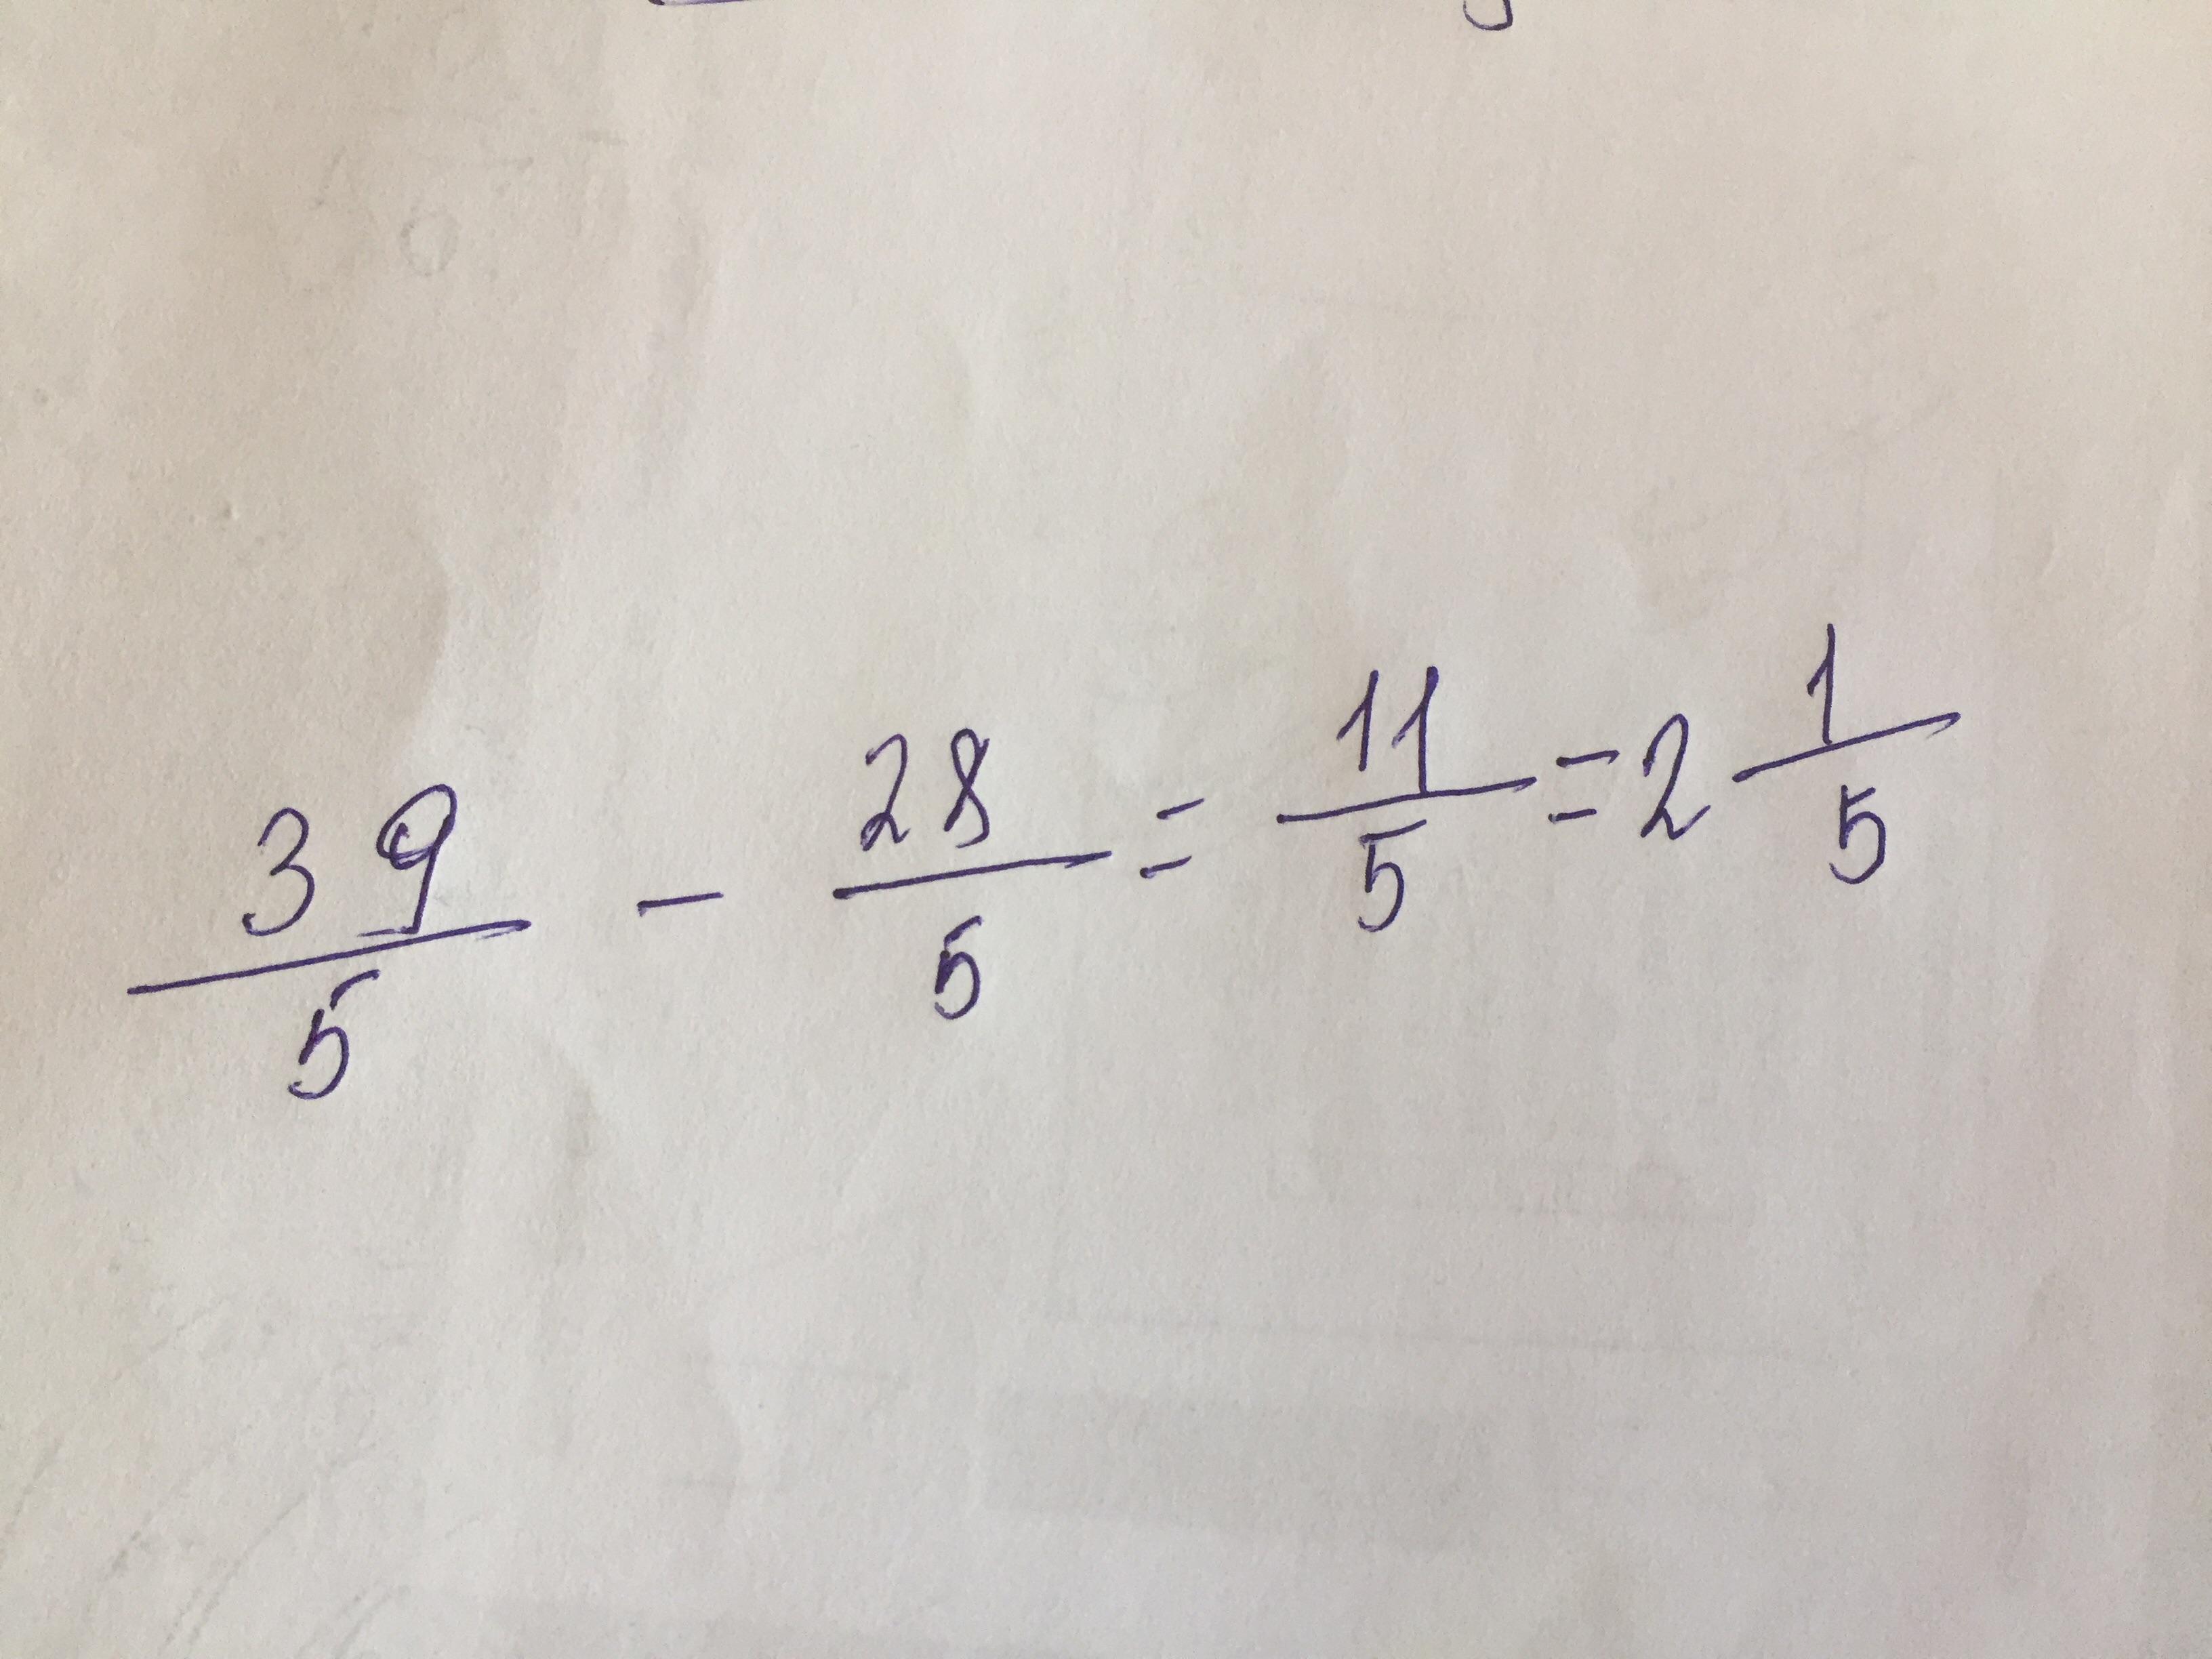 39/5 - 28/5 = 11/5 = 2 1/5